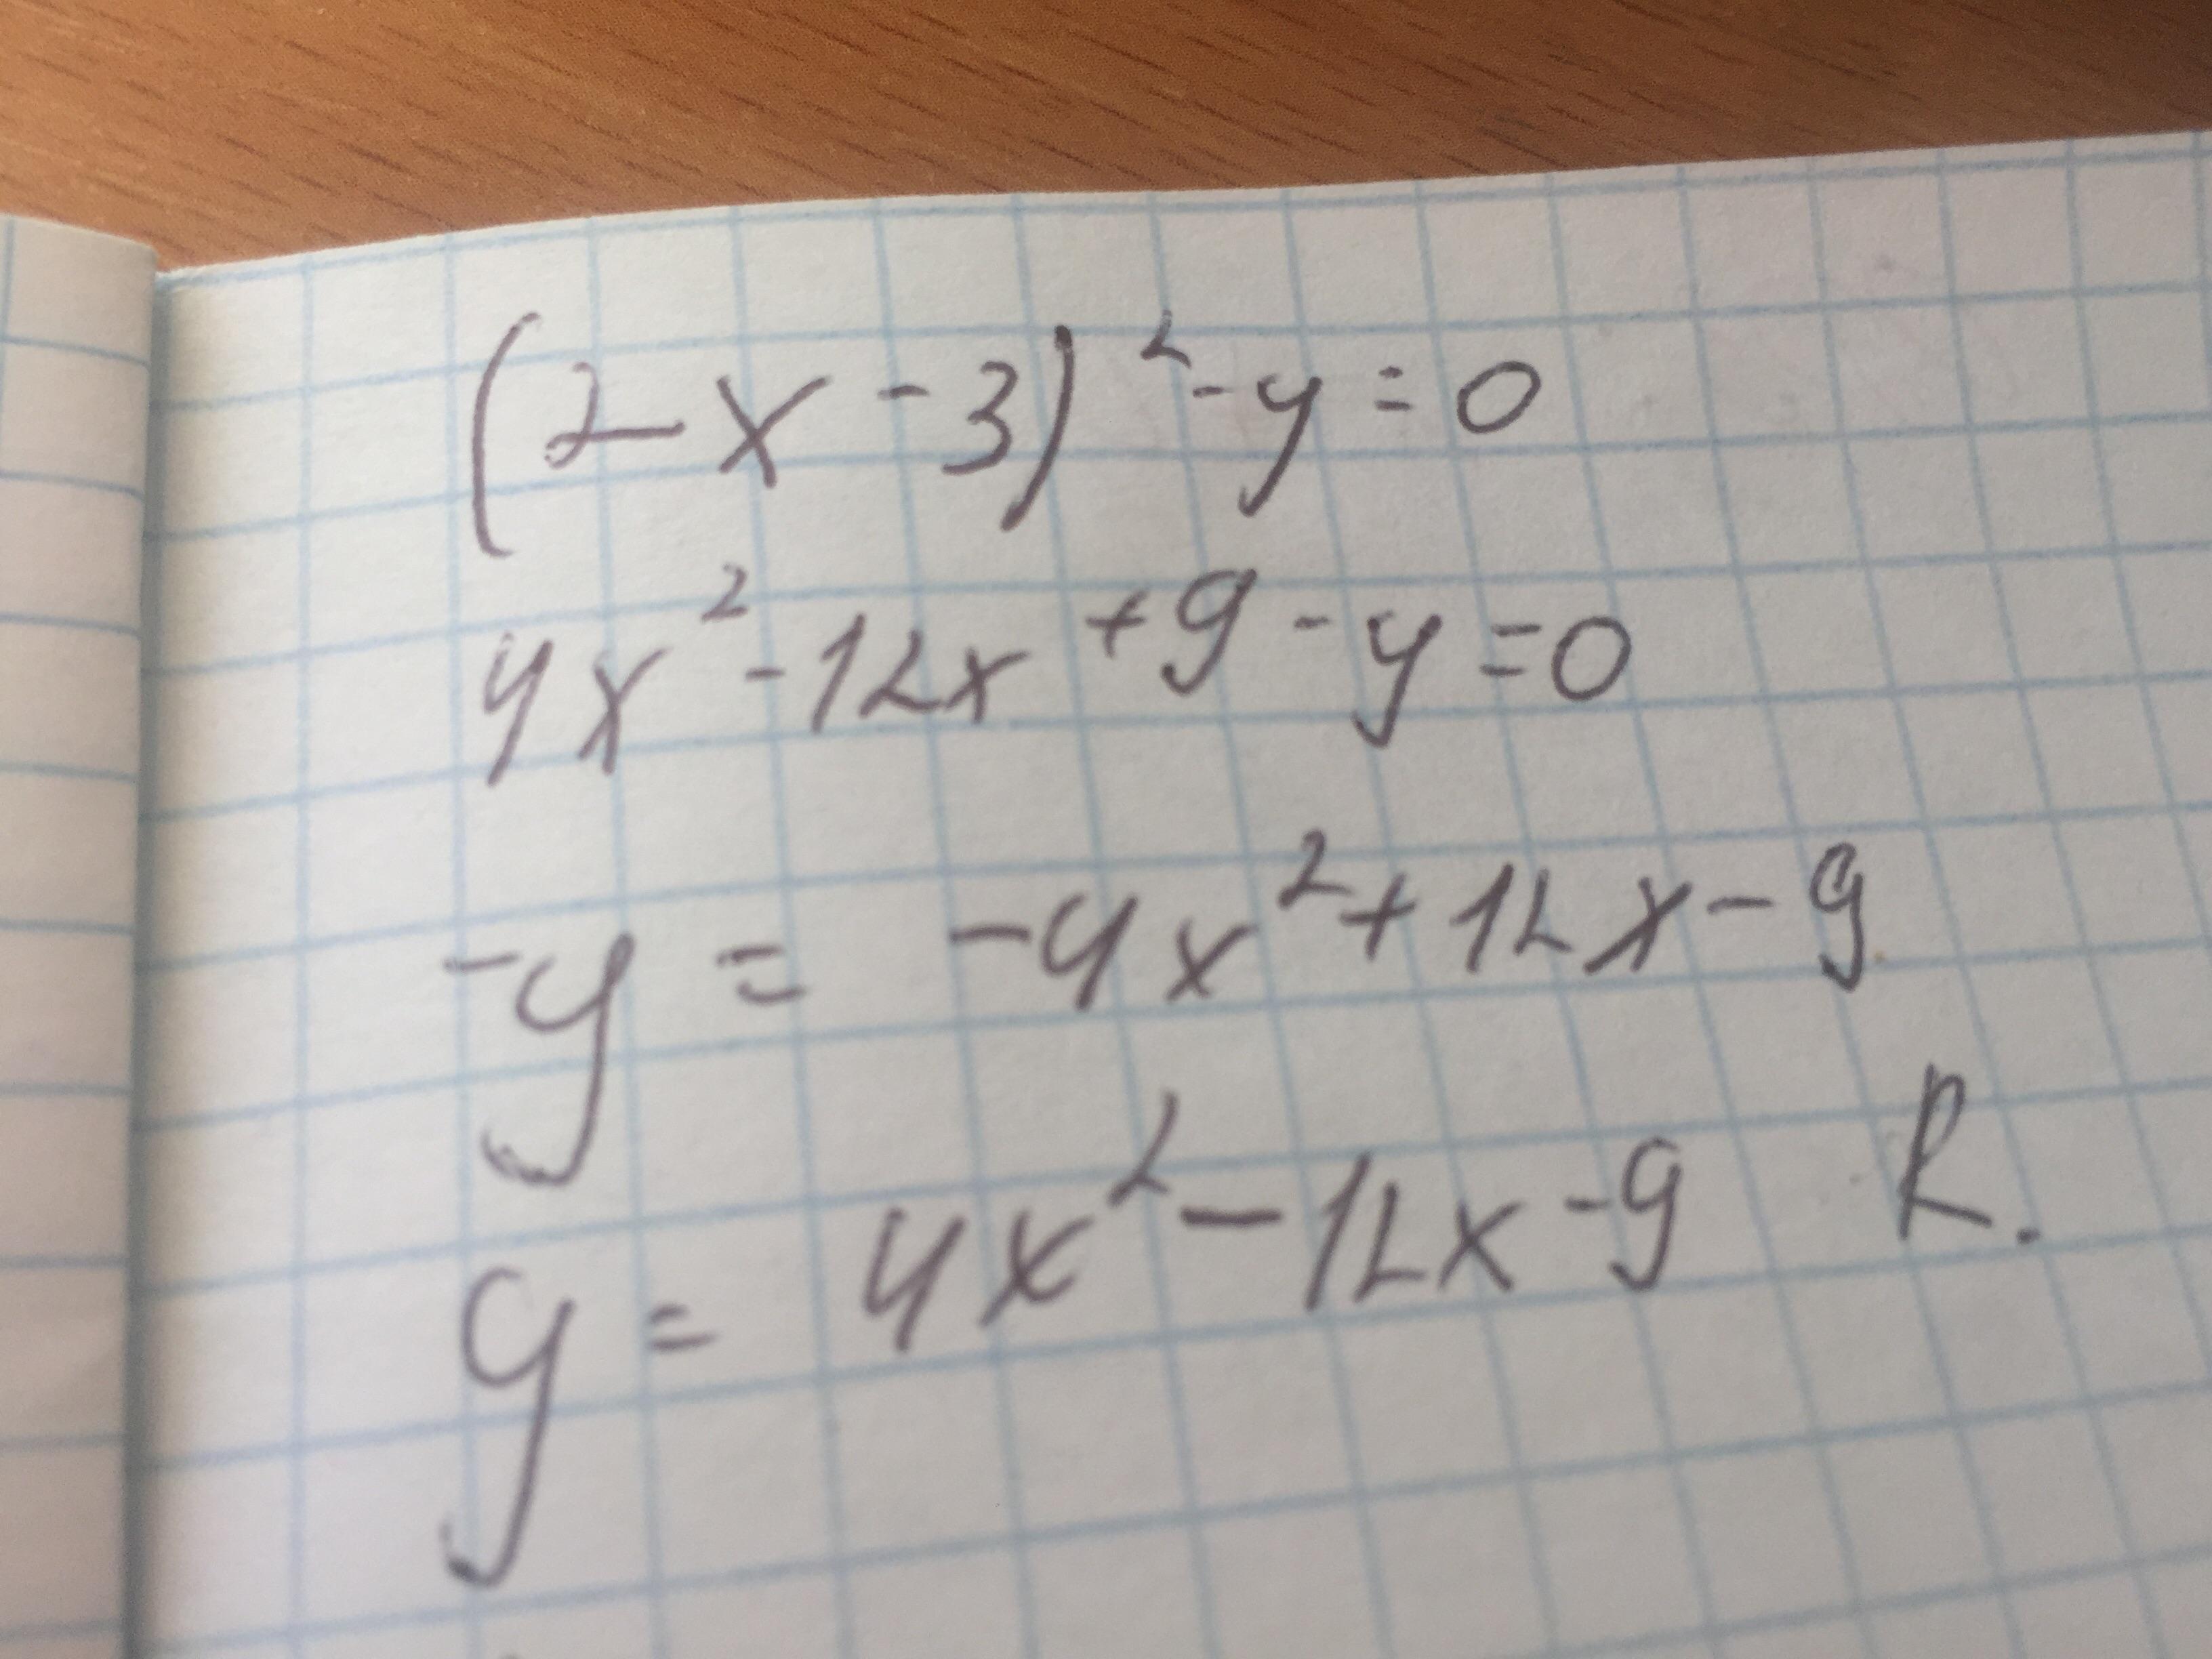 (2x-3)²-y=0
4x²-12x+9-y=0
-y = -4x²+12x-9
y = 4x²-12x-9 R.